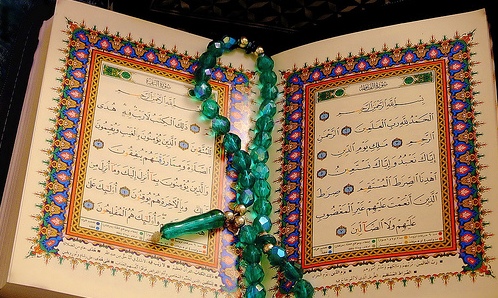 سُورَةُ الفَاتِحَةِ
بِسْمِ ٱللَّهِ ٱلرَّحْمَٰنِ ٱلرَّحِيمِ
ٱلْحَمْدُ لِلَّهِ رَبِّ ٱلْعَٰلَمِينَ ٱلرَّحْمَٰنِ
ٱلرَّحِيمِ مَٰلِكِ يَوْمِ ٱلدِّينِ
إِيَّاكَ نَعْبُدُ وَإِيَّاكَ نَسْتَعِينُ
ٱهْدِنَا ٱلصِّرَٰطَ ٱلْمُسْتَقِيمَ صِرَٰطَ
ٱلَّذِينَ أَنْعَمْتَ عَلَيْهِمْ غَيْرِ ٱلْمَغْضُوبِ
عَلَيْهِمْ وَلَا ٱلضَّآلِّينَ
سُورَةُ البَقَرَةِ
بِسْمِ ٱللَّهِ ٱلرَّحْمَٰنِ ٱلرَّحِيمِ
ذَٰلِكَ ٱلْكِتَٰبُ لَا رَيْبَ فِيهِ هُدًى
لِّلْمُتَّقِينَ ٱلَّذِينَ يُؤْمِنُونَ بِٱلْغَيْبِ وَيُقِيمُونَ
ٱلصَّلَوٰةَ وَمِمَّا رَزَقْنَٰهُمْ يُنفِقُونَ
وَٱلَّذِينَ يُؤْمِنُونَ بِمَآ أُنزِلَ إِلَيْكَ وَمَآ أُنزِلَ
وَبِٱلْءَاخِرَةِ هُمْ يُوقِنُونَ أُو۟لَٰٓئِكَ عَلَىٰ
وَأُو۟لَٰٓئِكَ هُمُ ٱلْمُفْلِحُونَ